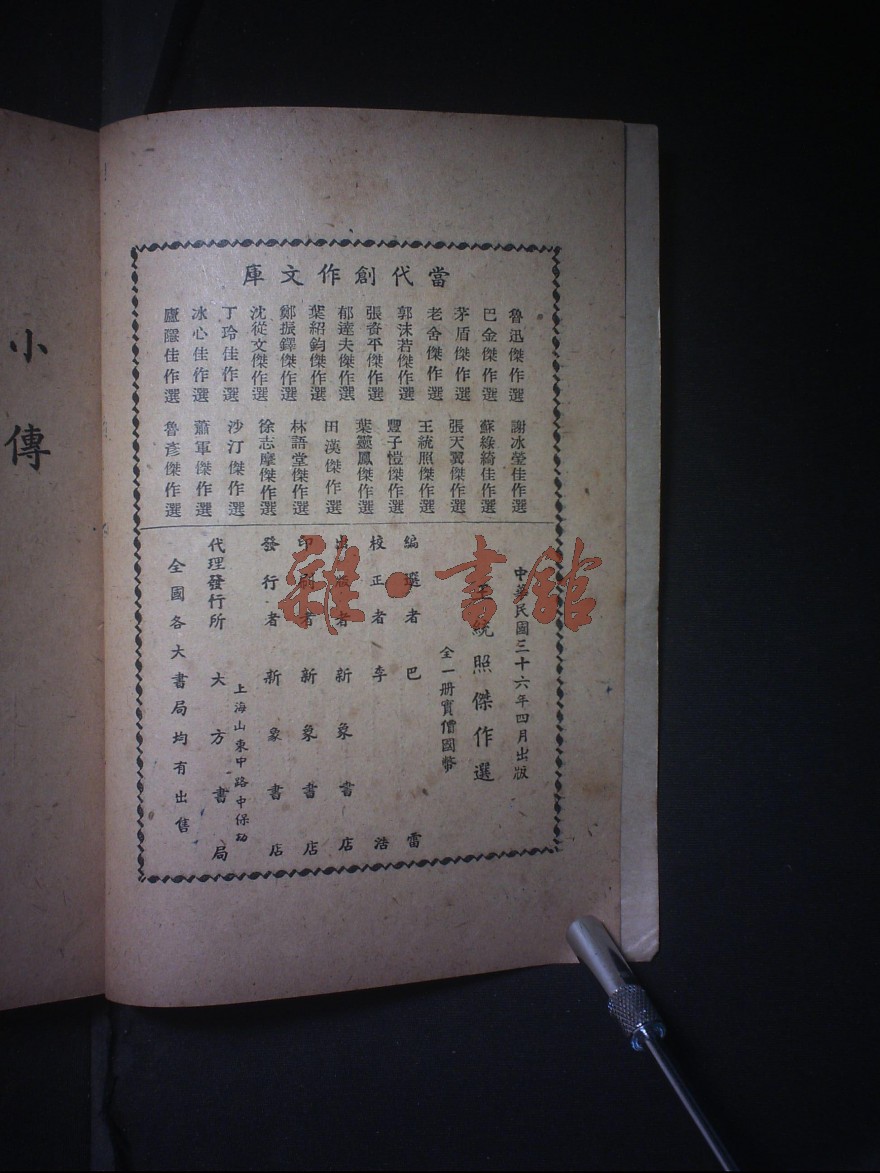 當代創作文庫
魯迅傑作選
巴金傑作選
茅盾傑作選
老舍傑作選
郭沫若傑作選
張資平傑作選
郁達夫傑作選
葉紹鈞傑作選
鄭振鐸傑作選
沈從文傑作選
丁玲佳作選
冰心佳作選
廬隱佳作選
謝冰瑩佳作選
蘇綠綺佳作選
張天翼傑作選
王統照傑作選
豐子愷傑作選
葉靈鳳傑作選
田漢傑作選
林語堂傑作選
徐志摩傑作選
沙汀傑作選
蕭軍傑作選
魯彥傑作選
中華民國三十六年四月出版
王統照傑作選
全一册實價國幣
編選者 巴雷
校正者 李浩
出版者 新象書店
印刷者 新象書店
發行者 新象書店
上海山東中路中保坊
代理發行所 大方書局
全國各大書局均有出售
小傳
雜·書館